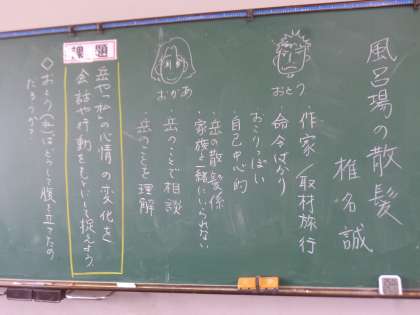 風呂場の散髪
椎名誠
おとう
・作家/取材旅行
・命令ばかり
おこりっぽい
・自己中心的
おかあ
・岳の散髪係
・家族と一緒にいられない
・岳のことで相談
・岳のことを理解
課題
岳や「私」の心情の変化を
会話や行動をもとにして捉えよう。
◇おとう(私)はどうして腹を立てたの
だろうか?